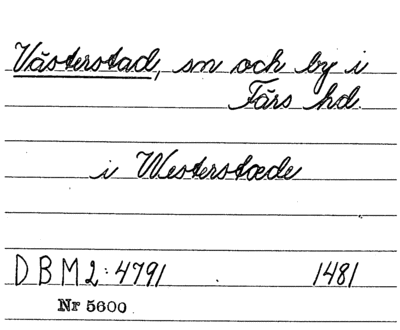 Västerstad, sn och by i
Färs hd.
i Westerstæde
DBM2:4791 1481
Nr 5600